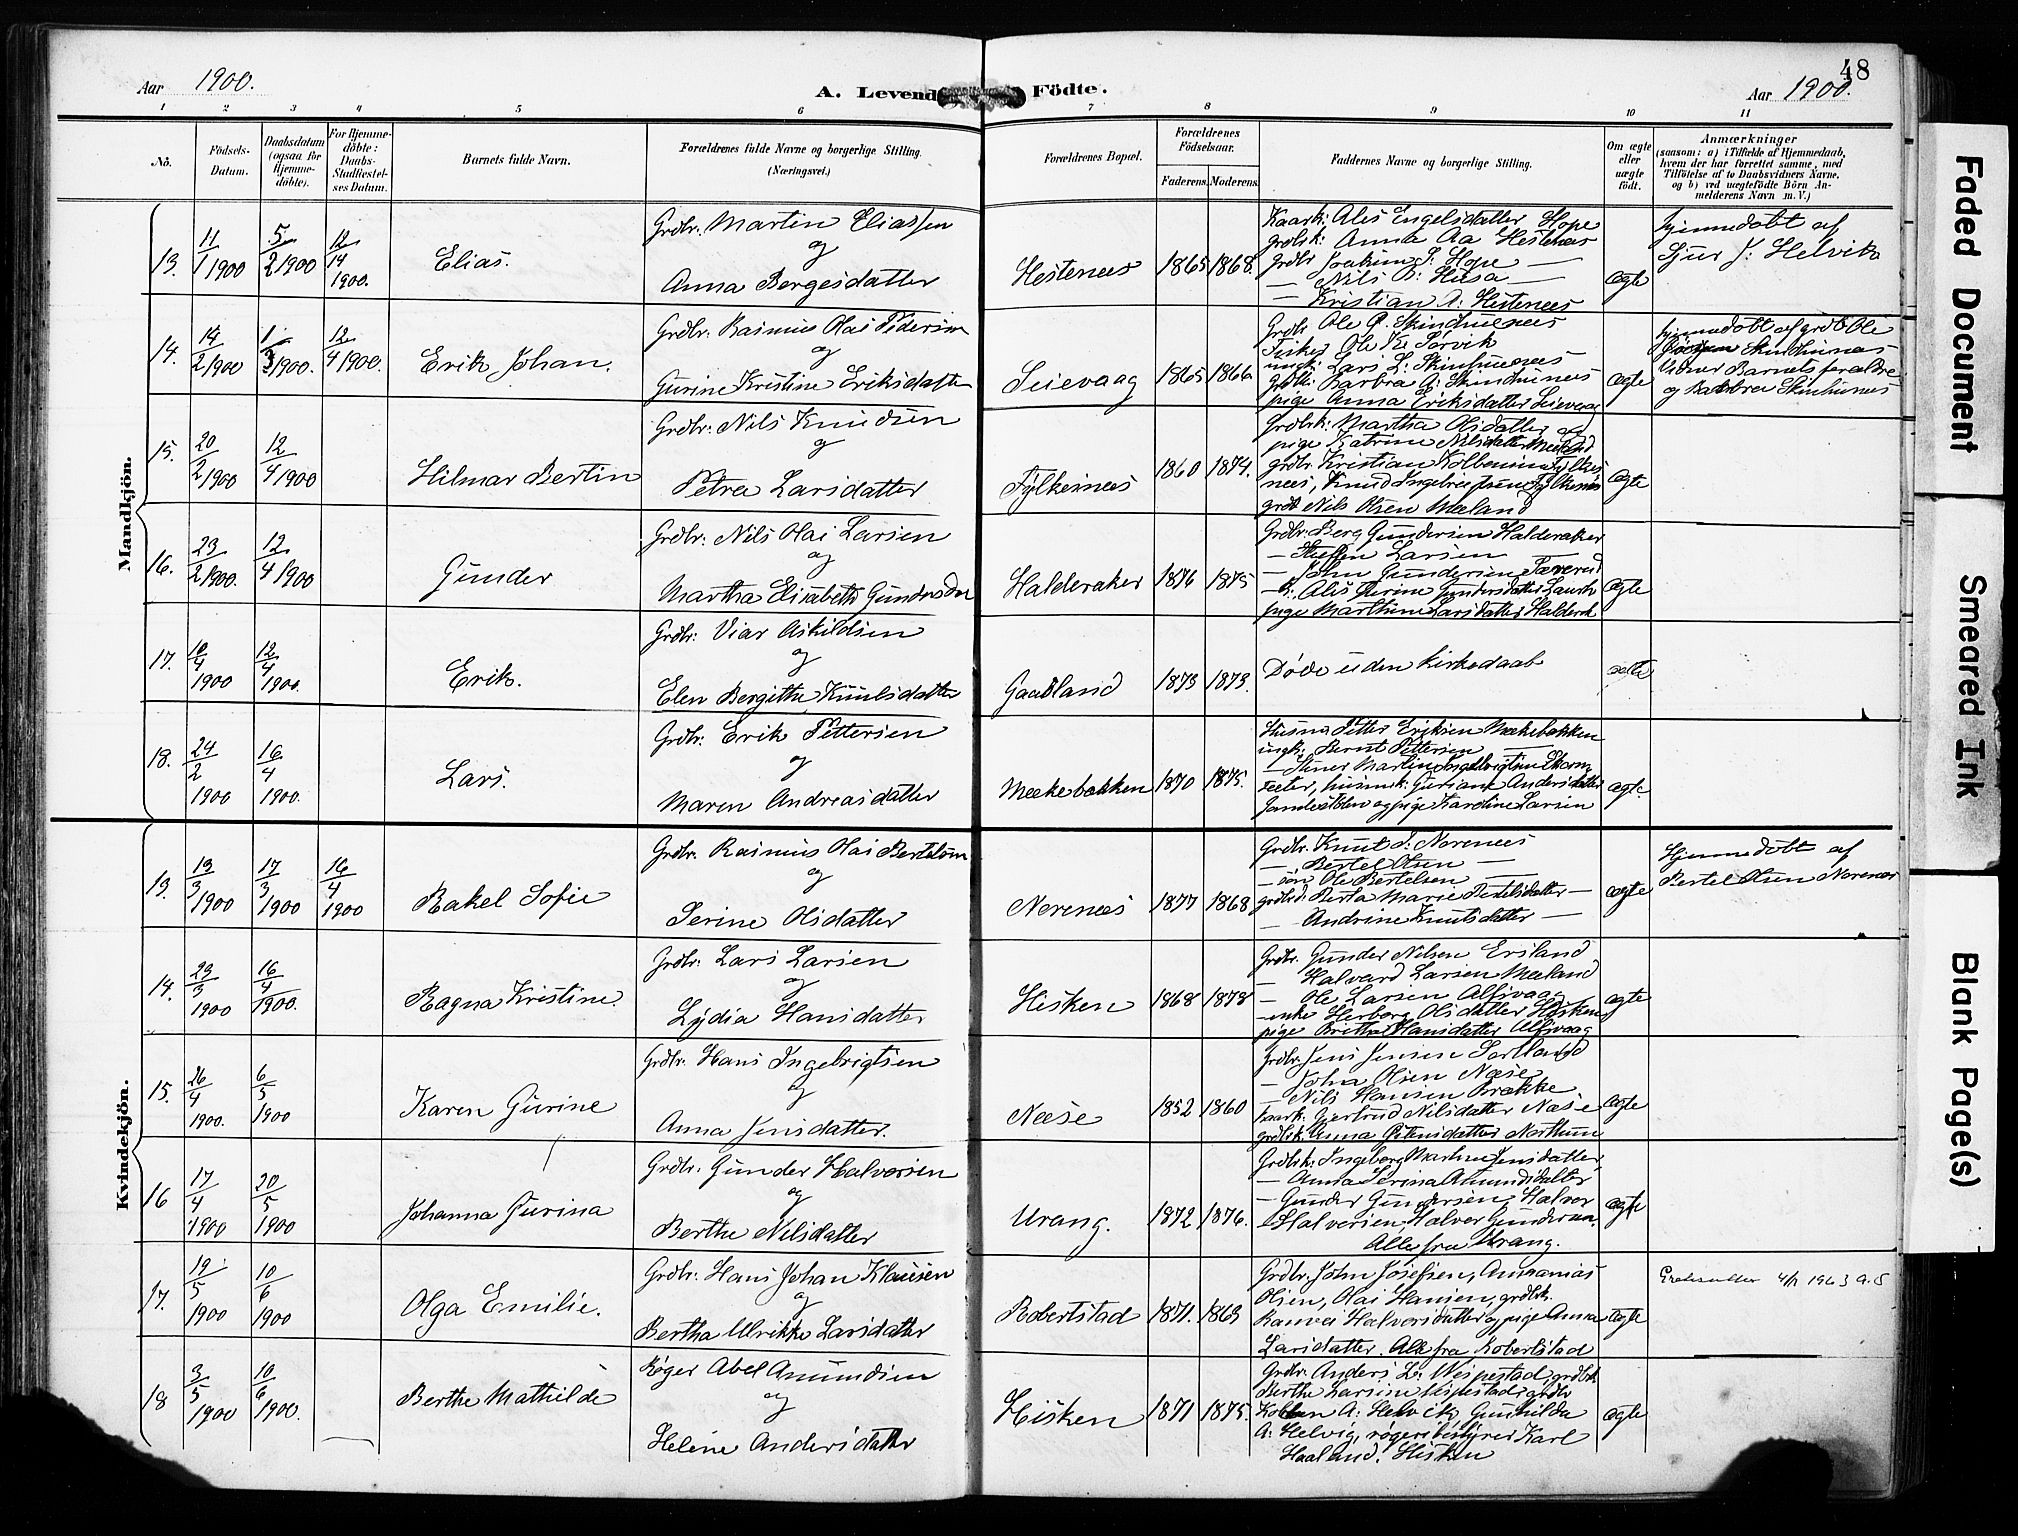 48
Aar 1900.
A. Levende Födte.
Aar 1900.
1 2 3 4 5 6 7 8 9 10 11
Nô.
Födsels-Datum.
Daabsdatum (ogsaa for Hjemme-döbte).
For Hjemme-döbte: Daabs-Stadfæstel-ses Datum.
Barnets fulde Navn.
Forældrenes fulde Navne og borgerlige Stilling. (Næringsvei.)
Forældrenes Bopæl.
Forældrenes Födselsaar.
Faderens. Moderens.
Faddernes Navne og borgerlige Stilling.
Om ægte eller uægte födt.
Anmærkninger
(saasom: a) i Tilfælde af Hjemmedaab, hvem der har forrettet samme, med Tilföielse af to Daabsvidners Navne, og b) ved uægtefödte Börn An-melderens Navn m. V.)
Mandkjön.
13. 11/1 1900 5/2 1900 12/14 1900. Elias.
Grdbr. Martin Eliassen
og
Anna Bergesdatter
Hestenæs 1865 1868.
Kaark: Alis Engelsdatter Hope
grdbsk: Anna Aa Hestenæs
grdbr Joakim J. Hope —
— Nils B: Husa —
— Kristian A: Hestenæs
ægte
hjemmedøbt af
Sjur J: Helvik
14. 14/2 1900 1/3 1900. 12/4 1900. Erik Johan.
Grdbr: Rasmus Olai Pedersen
og
Gurine Kristine Eriksdatter
Seievaag 1865 1866
Grdbr Ole Skinhuenæs
Fisker Ole K. Sørvik
ungk: Lars L: Skinhuenæs
grdbk: Barbra A: Skinhuenæs
pige Anna Eriksdatter Seievaag
ægte
hjemmedøbt af grdb Ole
Skinhuenæs
Vidner Barnets forældre
og Barbra Skinhuenæs
15. 20/2 1900 12/4 1900 Hilmar Bertin
Grdbr: Nils Knudsen
og
Petra Larsdatter
Fylkesnæs 1860 1874.
Grdbsk: Martha Olsdatter og
pige Katrine Nilsdatter Mæland
grdbr. Kristian Kolbensen Fylkes
næs, Knud Ingebretsen Fylkesnæs
grdb Nils Olsen Mæland
ægte
16. 23/2 1900. 12/4 1900 Gunder
Grdbr: Nils Olai Larsen
og
Martha Elisabeth Gundersdtr
Halderaker 1876 1875
Grdbr. Berg Gundersen Halderaker
— Steffen Larsen —
— John Gundersen Tæverud
— k: Alis Serine Gundersdatter
pige Marthine Larsdatter Haldersk
ægte
17. 10/4 1900 12/4 1900. Erik.
Grdbr: Viar Askildsen
og
Elen Bergithe Knutsdatter
Gaasland 1873 1873.
Døde uden Kirkedaab
ægte
18. 24/2 1900 16/4 1900. Lars.
Grdbr: Erik Pettersen
og
Maren Andreasdatter
Mækebakken 1870 1875.
Husmd Petter Eriksen Mækebakken
ungk: Bernt Pettersen —
— Stener Martin Ingebrigtsen
sæter, husmk: Guriane Andersdatter
og pige Karoline Larsen
ægte.
Kvindekjön.
13. 13/3 1900 17/3 1900 16/4 1900 Rakel Sofie
Grdbr. Rasmus Olai Bertelsen
og
Serine Olsdatter
Nerenæs 1877 1868
Grdbr. Knut S: Nerenæs
— Bertel Olsen —
— søn Ole Bertelsen —
grdbsd: Berta Marie Bertelsdatter —
— Andrine Knutsdatter —
ægte
Hjemmedøbt af
Bertel Olsen Nerenæs
14. 23/3 1900 16/4 1900. Ragna Kristine.
Grdbr. Lars Larsen
og
Lydia Hansdatter
Hisken 1868 1878
Grdbr. Gunder Nilsen Ersland
— Halvard Larsen Mæland
— Ole Larsen Alfsvaag
— enke Herborg Olsdatter Hisken
pige Britha Hansdatter Alfsvaag
ægte
15. 26/4 1900. 6/5 1900 Karen Gurine
Grdbr: Hans Ingebrigtsen
og
Anna Jensdatter.
Næse 1852 1860
Grdbr. Jens Jensen Sortland
— John Olsen Næse
— Nils Hansen Brække
kaark: Gjertrud Nilsdatter Næse
grdbsk: Anna Nortun
ægte
16 17/4 1900 20/5 1900 Johanna Gurina
Grdbr. Gunder Halvorsen
og
Berthe Nilsdatter
Urang. 1872 1876.
Grdbsk: Ingeborg Martha Jensdatter,
— Anna Serina Amundsdatter
— Gunder Gundersen, Halvor
— Halvorsen, Halvor Gundersen.
Alle fra Urang.
ægte
17. 19/5 1900 10/6 1900 Olga Emilie.
Grdbr: Hans Johan Klausen
og
Bertha Ulrikke Larsdatter
Robertstad 1871. 1863
Grdbr. John Josefsen, Annanias
Olsen, Olai Hansen, grdbsk.
Ranvei Halvorsdatter og pige Anna
Larsdatter. Alle fra Robertstad
ægte
4/1 1963 A.S
18 3/5 1900 10/6 1900. Berthe Mathilde
Røger Abel Amundsen
og
Helene Andersdatter
Hisken 1871 1875.
Grdbr. Anders L. Vespestad grdbsk
Berthe Larsine Vespestad, grdbr
A: Helvik, Gunhilda
A: Helvig, røgeribestyrer Karl
Haaland. Hisken
ægte
Faded Document
Smeared Ink
Blank Page(s)